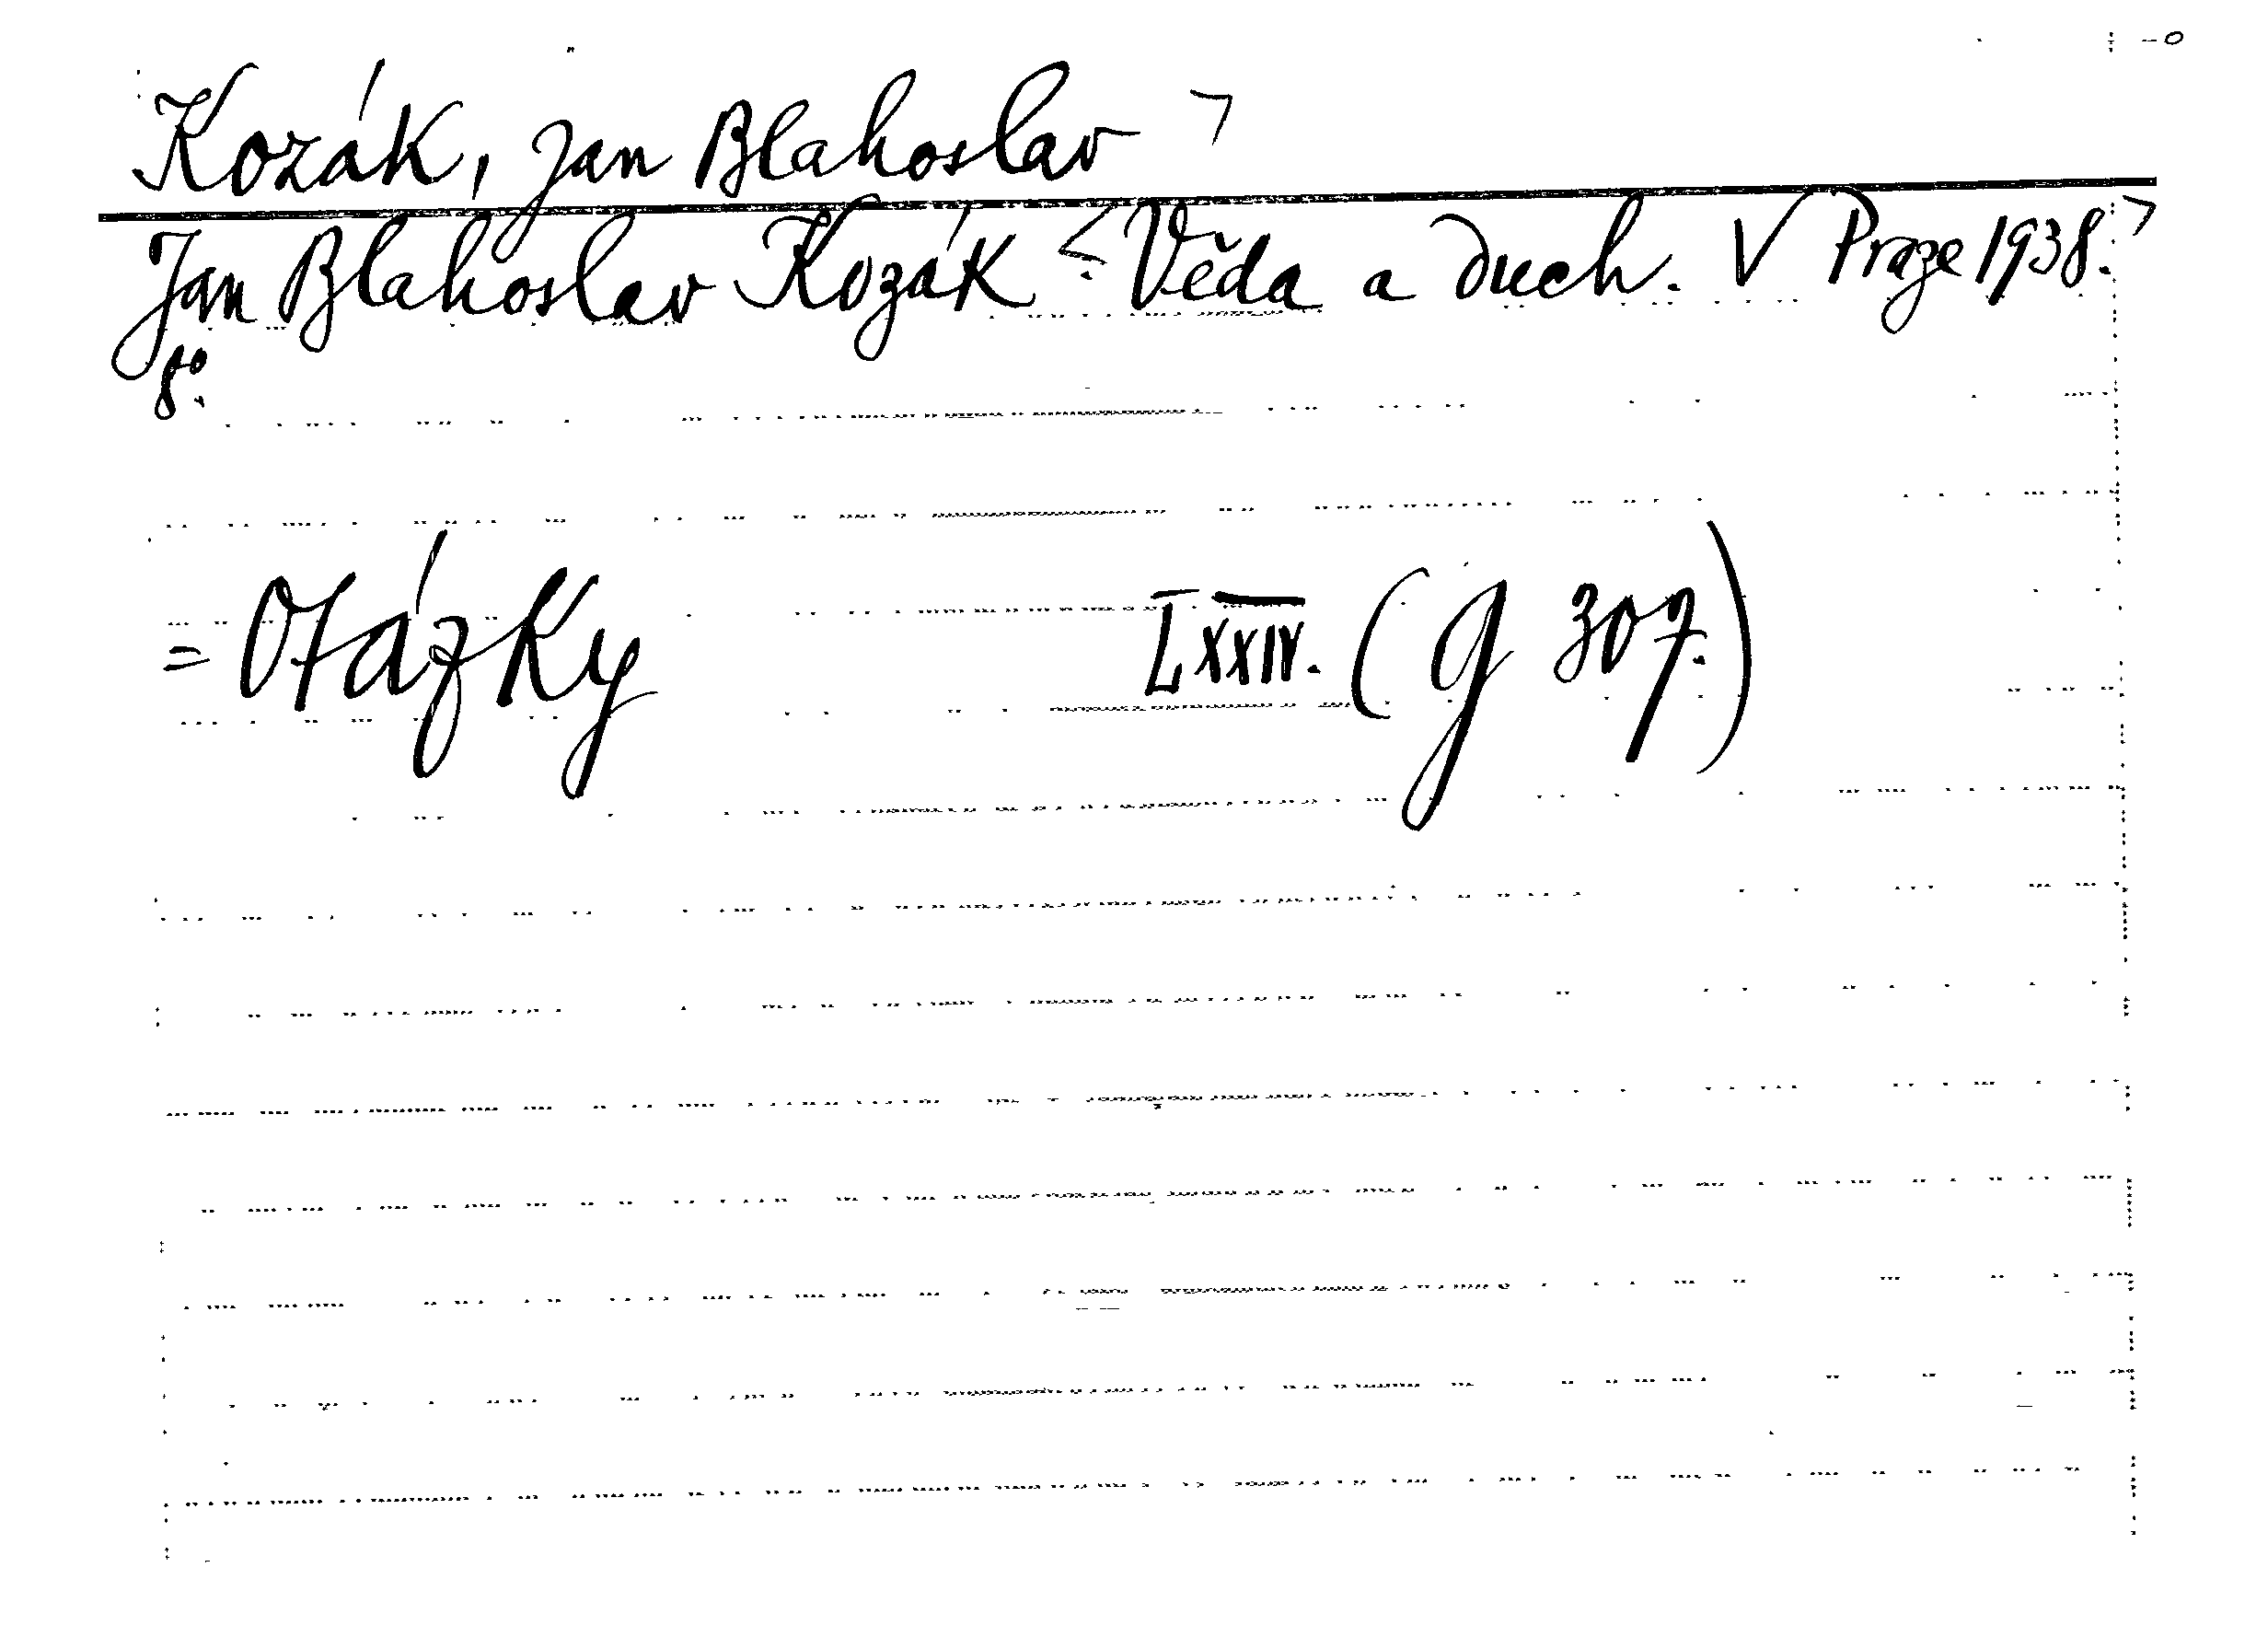 Kozák, Jan Blahoslav ¬
Jan Blahoslav Kozák <: Věda a duch. V Praze 1938.¬
8º.
= Otázky LXXIV. (g 307.)